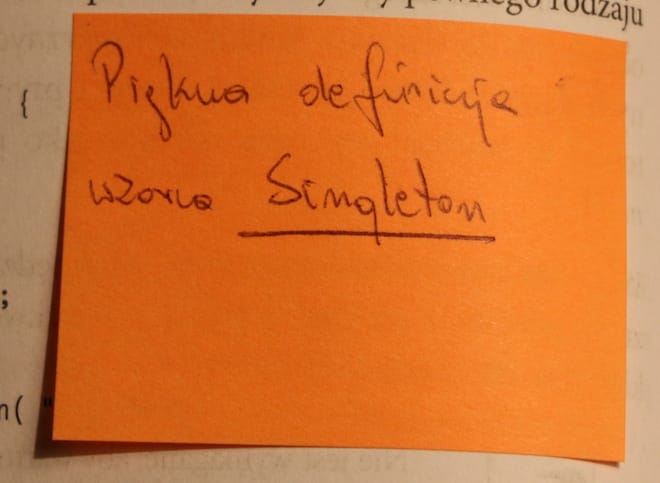 pewnego rodzaju
{
Piękna definicja
wzorca Singleton
;
n( "
Nie jest wymagane,